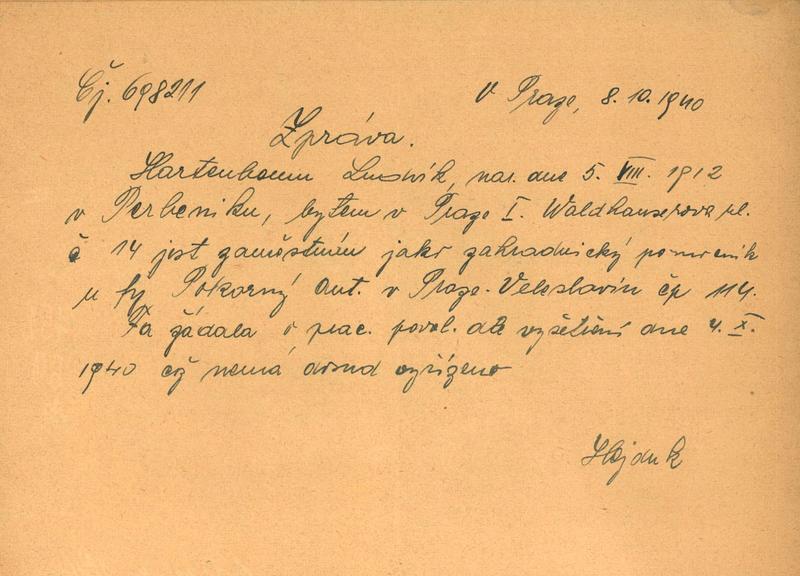 Čj. 698211
V Praze, 8. 10. 1940
Zpráva.
Hartenbaum Ludvík, nar. dne 5. VIII. 1912
v Perbeniku, bytem v Praze I. Waldhauserova ul.
č 14 jest zaměstnán jako zahradnický pomocník
u fy Pokorný Ant. v Praze-Veleslavín čp 114.
Fa žádala o prac. povol. dle vyšetření dne 4. X.
1940 což nemá dosud vyřízeno
Hajduk